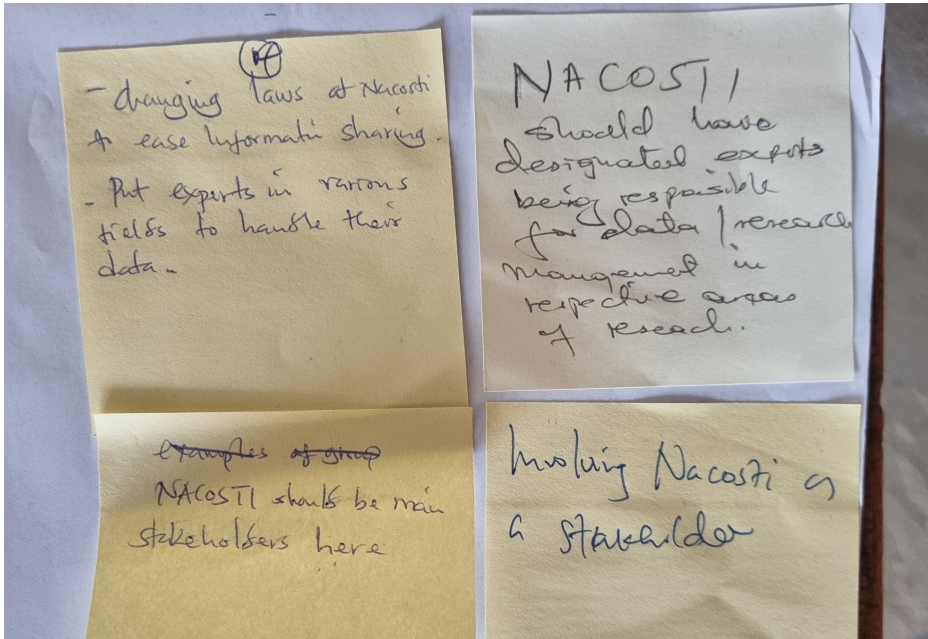 - Changing laws at Nacosti
to ease Informatin sharing.
- Put experts in various
fields to handle their
data.
NACOSTI
should have
designated experts
being responsible
for data / research
mangement in
respective areas
of reseach.
examples of group
NACOSTI should be main
stakeholders here
Involving Nacosti as
a stakeholder